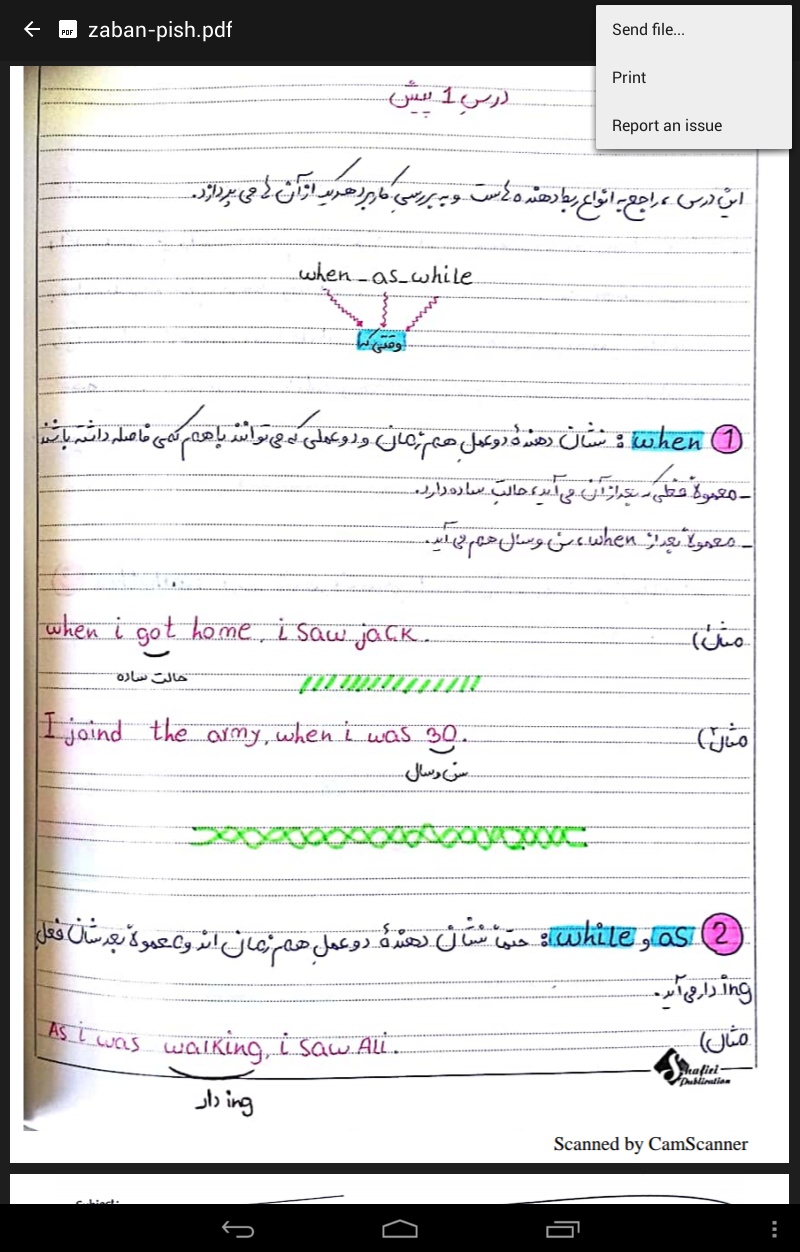 zaban-pish.pdf
Send file...
Print
Report an issue
درسِ 1 پیش
این درس ، راجع به انواع ربط دهنده هاست و به بررسیِ کاربرد هر یک از آن ها می پردازد.
when _ as _ while
وقتی که
1 when : نشان دهندهٔ دو عملِ هم زمان و دو عملی که می توانند با هم کمی فاصله داشته باشند
_ معمولاً فعلی که بعد از آن می آید، حالتِ ساده دارد.
_ معمولاً بعد از when ، سن و سال هم می آید.
مثال) when i got home, i saw jack.
حالت ساده
مثال) I joind the army, when i was 30.
سن و سال
2 as و while : حتماً نشان دهندهٔ دو عملِ هم زمان اند و معمولاً بعدشان فعل
ing دار می آید.
مثال) As i was walking, i saw Ali.
ing دار
Shafiei
Publication
Scanned by CamScanner
Subject: